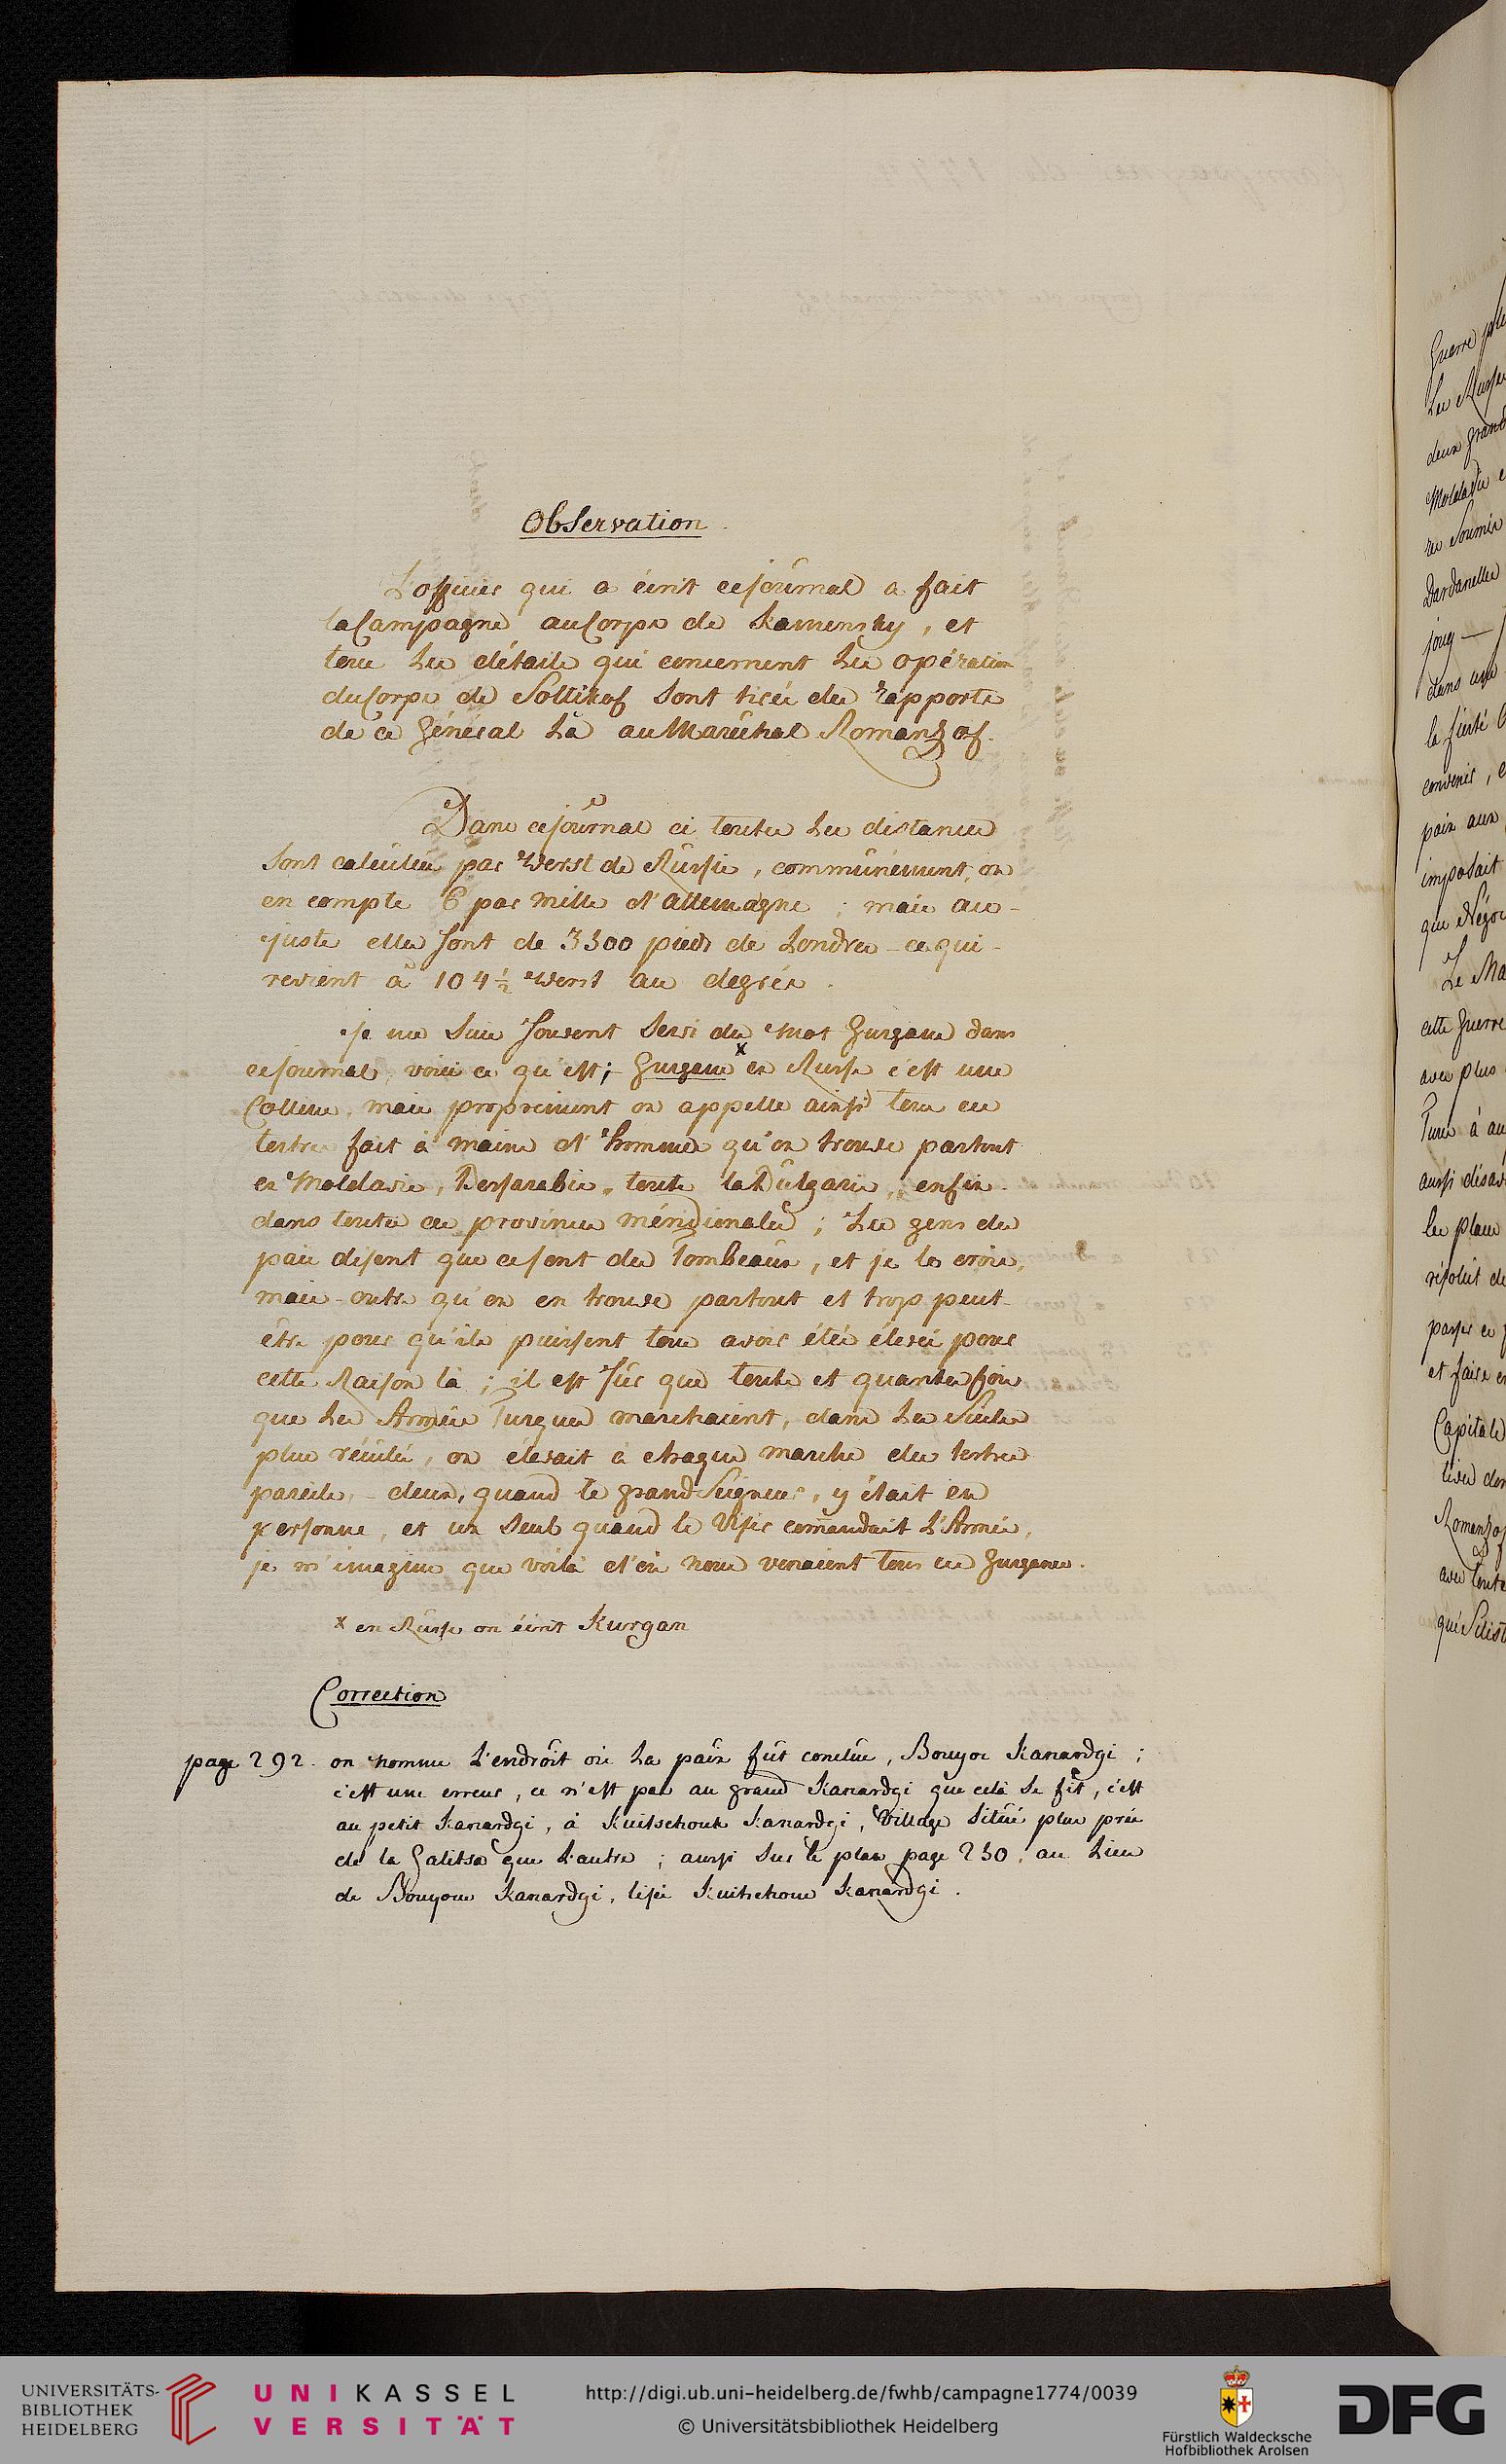 Observation.
L'officier qui a écrit ce journal a fait
la Campagne au Corps de Kamensky, et
tous les détails qui concernent les opération
du Corps de Soltikof sont tirés des rapports
de ce Général là au Maréchal Romanzof.
Dans ce journal ci toutes les distances
sont calculées par Werst de Russie, communément, on
en compte 6 par mille d'Allemagne ; mais au-
juste elles sont de 3500 pieds de Londres - ce qui-
revient à 104 1/2 werst au degrés.
Je me suis souvent servi du mot Gurgane dans
ce journal, voici ce qu'est ; Gurgane x en Russe c'est une
Colline, mais proprement on appelle ainsi tous ces
tertres fait à mains d'hommes qu'on trouve partout
en Moldavie, Bessarabie, toute la Bulgarie, enfin
dans toutes ces provinces méridionales ; Les gens du
païs disent que ce sont des Tombeaux, et je le crois,
mais - outre qu'on en trouve partout et trop peut-
être pour qu'ils puissent tous avoir étés élevés pour
cette Raison là ; il est sur que toutes et quantes fois
que les Armées Turques marchaient, dans les Siècles
plus réculés, on élevait à chaque marche des tertres
pareils, - deux, quand le grand Seigneur, y était en
personne, et un seul quand le Visir comandait l'Armée,
je m'imagine que voilà d'où nous venaient tous ces Gurganes.
x en Russe on écrit Kurgan
Correction
page 292. on nomme l'endroit où la paix fut conclue, Bouyoc Kanardgi ;
c'est une erreur, ce n'est pas au grand Kanardgi que celà se fit, c'est
au petit Kanardgi, à Kuitschouk Kanardgi, Village situé plus près
de la Galitsa que l'autre ; aussi sur le plan page 230, au lieu
de Bouyouc Kanardgi, lisés Kuitschouc Kanardgi.
Guerre
Les Russes
deux grand
Moldavie
Dardanelles
joug —
dans une
la fierté
convenir,
paix aux
imposait
que Négoc
Le Ma
cette Guerre
avec plus
Turcs à au
aussi désav
les plans
résolut de
passer ce
et faire en
Capitale
Romanzof
avec toute
que Silist
UNIVERSITÄTS-
BIBLIOTHEK
HEIDELBERG
UNIKASSEL
VERSITÄT
http://digi.ub.uni-heidelberg.de/fwhb/campagne1774/0039
© Universitätsbibliothek Heidelberg
Fürstlich Waldecksche
Hofbibliothek Arolsen
DFG